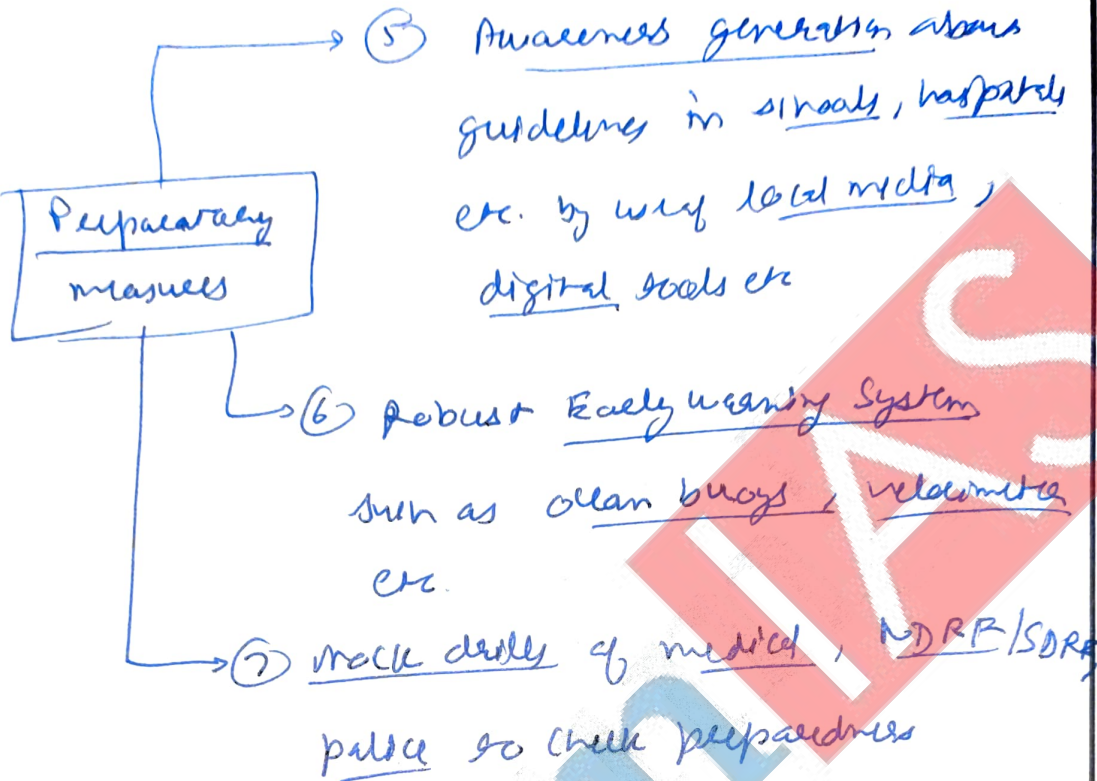 ⑤ Awareness generation about
guidelines in schools, hospitals
etc. by use of local media,
digital tools etc
Preparatory
measures
⑥ Robust Early warning System
such as ocean buoys, velocimeter
etc.
⑦ Mock drills of medical, NDRF/SDRF,
police to check preparedness
IAS